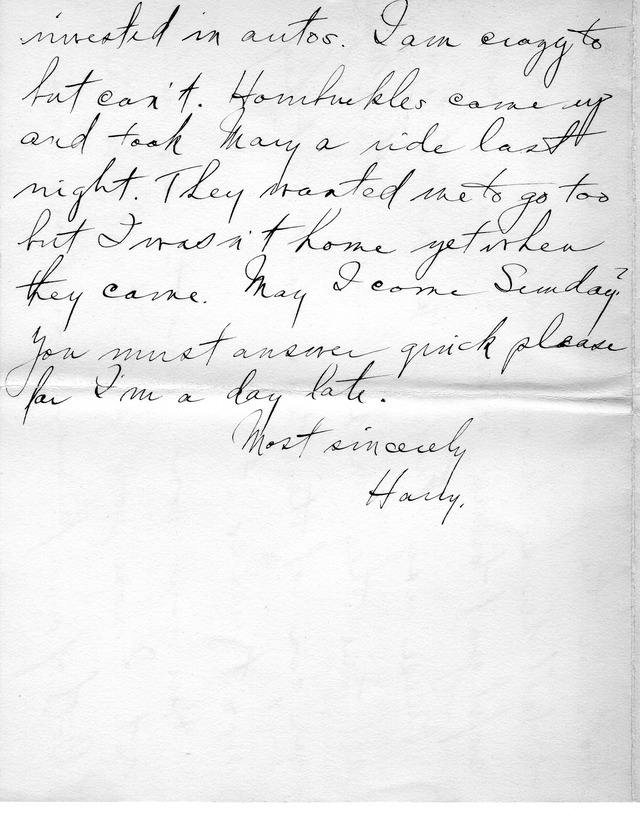 invested in autos. I am crazy to
but can't. Hornbuckles came up
and took Mary a ride last
night. They wanted me to go too
but I wasn't home yet when
they came. May I come Sunday?
You must answer quick please
for I'm a day late.
Most sincerely
Harry.